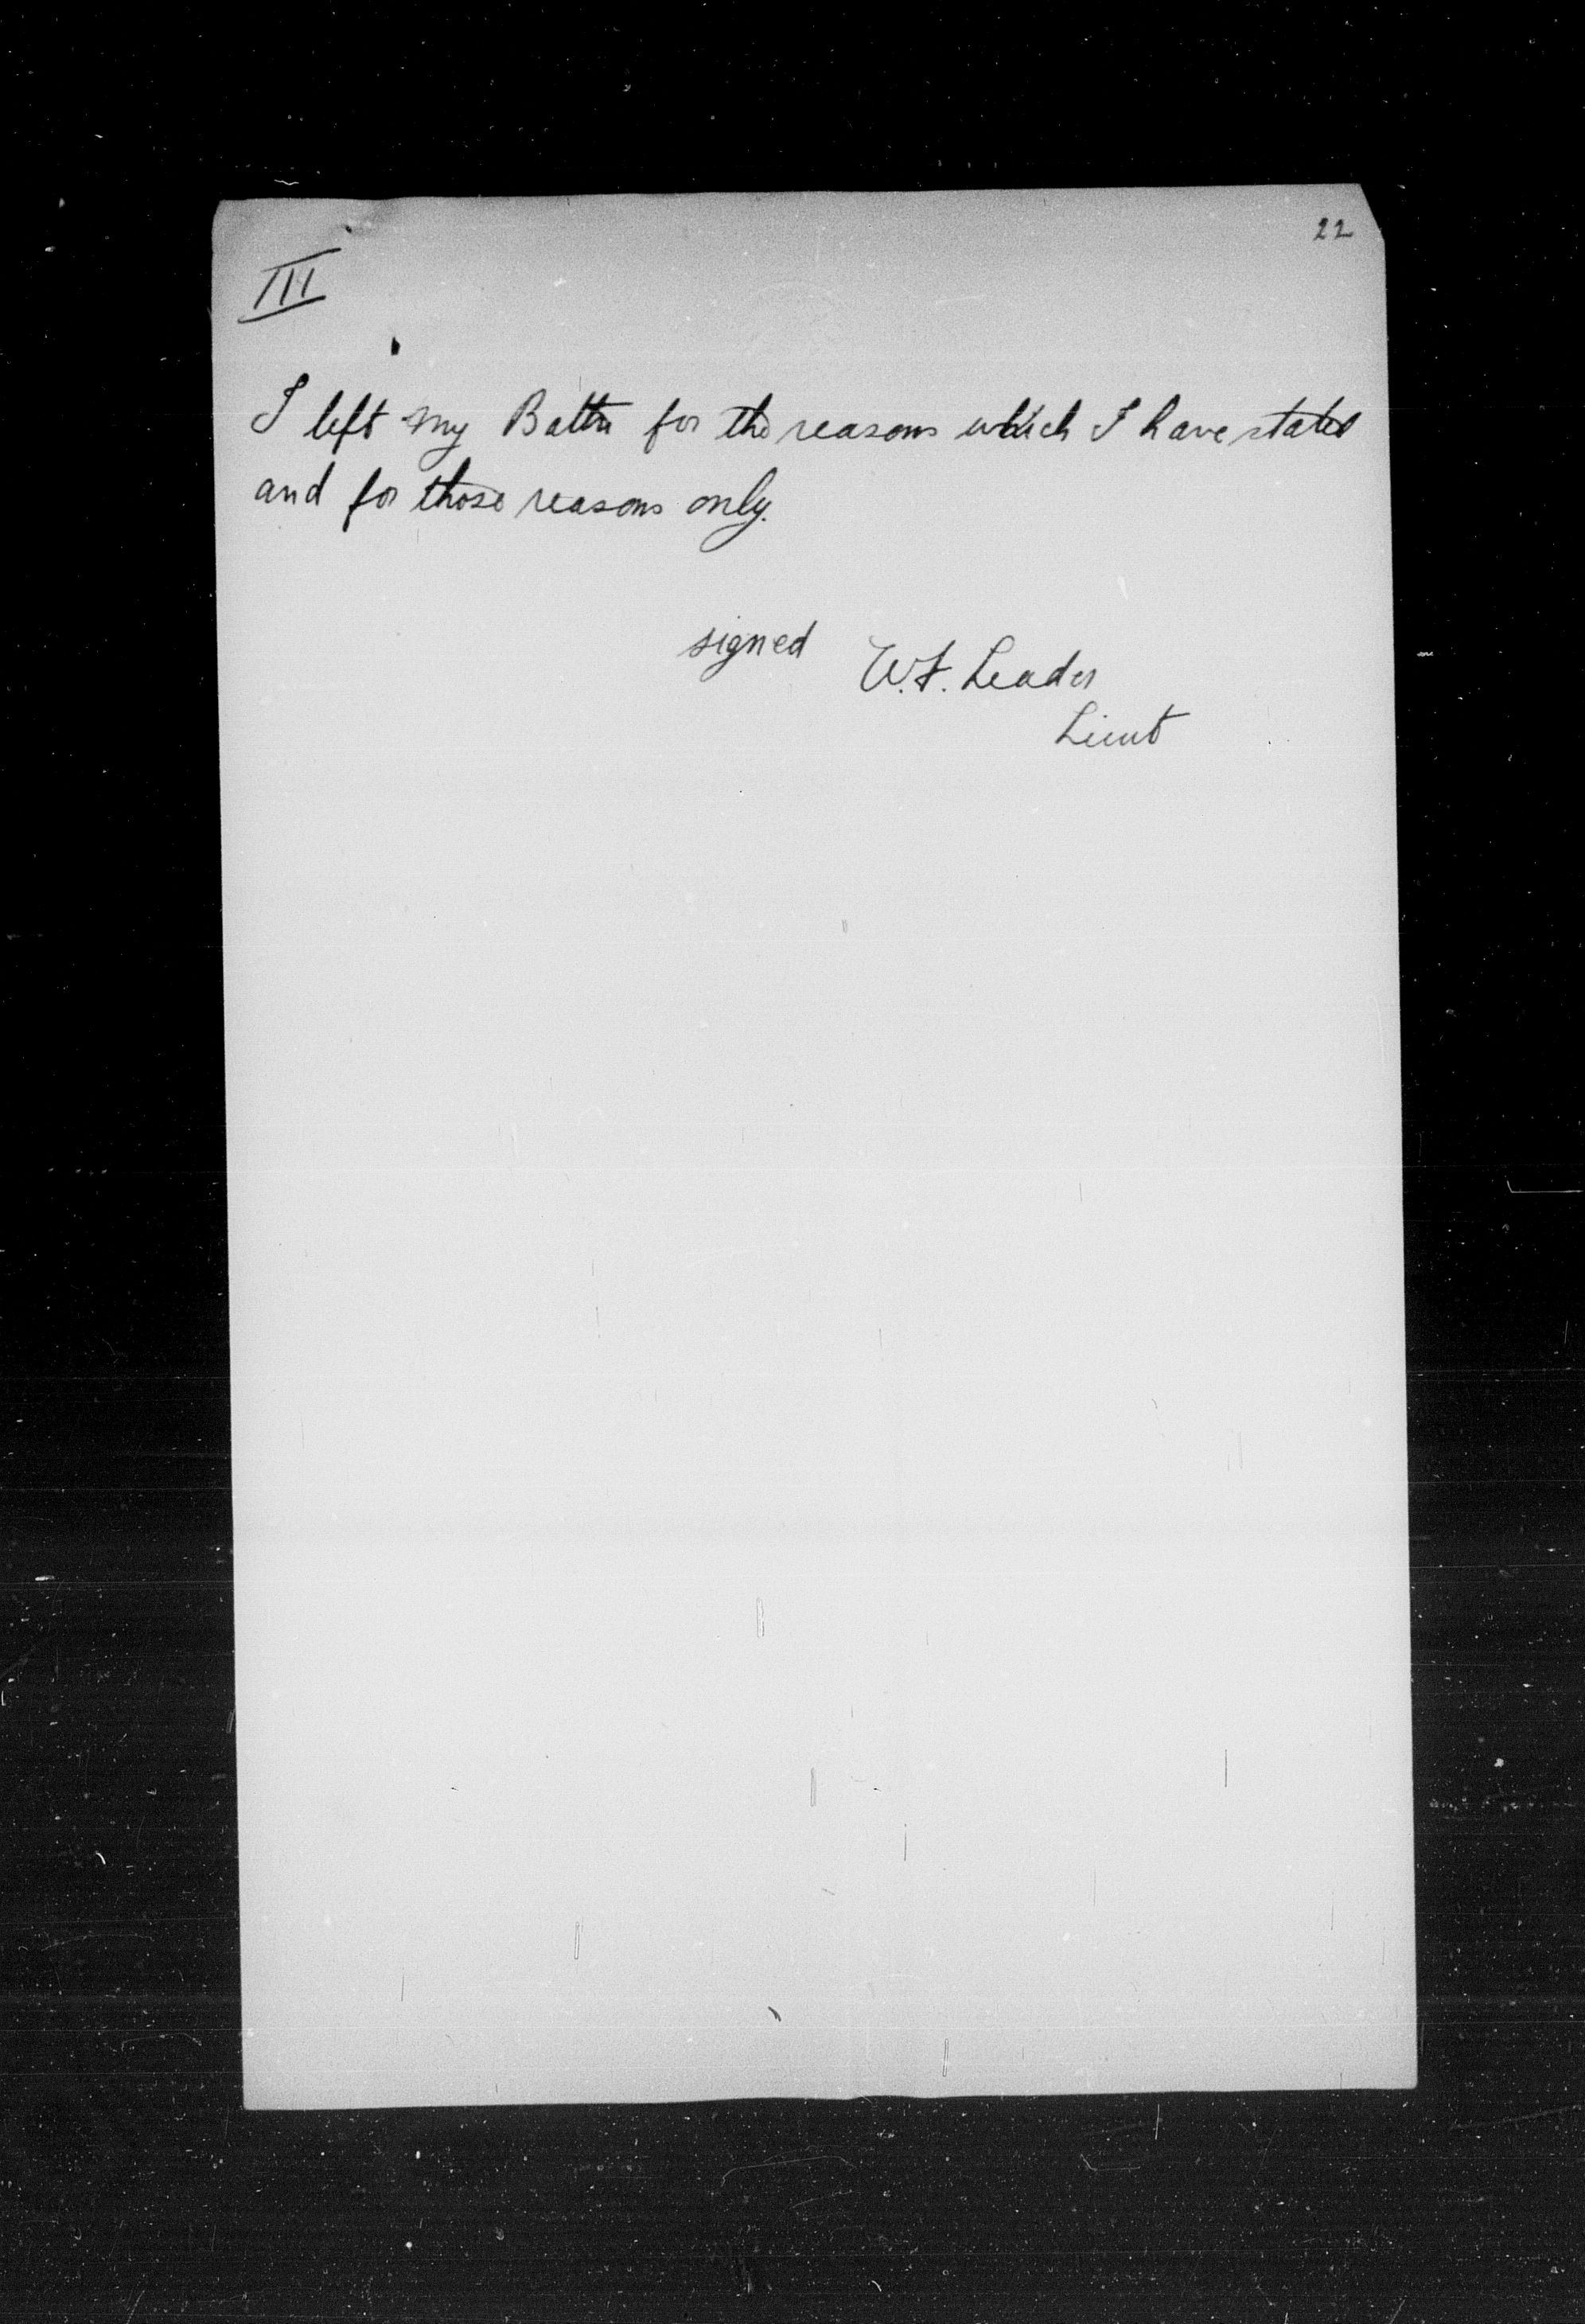 22
III
I left my Battn for the reasons which I have stated
and for those reasons only.
signed W.F. Leader
Lieut